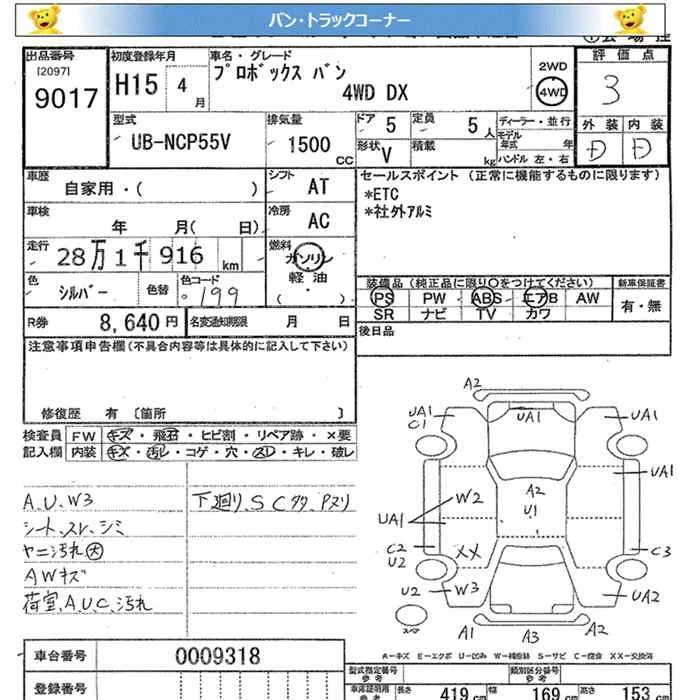 バン・トラックコーナー
出品番号 初度登録年月 車名・グレード 評価点
[2097]
9017
H15 4月
プロボックス バン
4WD DX
2WD
4WD
3
型式 UB-NCP55V
排気量 1500 CC
ドア 5 定員 5人
形状 V 積載 kg
ディーラー・並行
モデル年式 年
ハンドル 左・右
外装 内装
D D
車歴 自家用・( )
シフト AT
セールスポイント (正常に機能するものに限ります)
*ETC
*社外アルミ
車検 年 月( 日)
冷房 AC
走行 28万1千916 km
燃料 ガソリン・軽油
( )
色 シルバー 色替 色コード 199
装備品 (純正品に限り○をつけてください) 新車保証書
PS PW ABS エアB AW
SR ナビ TV カワ
有・無
R券 8,640円 名変通知期限 月 日
後日品
注意事項申告欄(不具合内容等は具体的に記入して下さい)
修復歴 有 [箇所 ]
検査員 FW キズ・飛石・ヒビ割・リペア跡・×要
記入欄 内装 キズ・汚レ・コゲ・穴・スレ・キレ・破レ
A、U、W3
シート、スレ、シミ
ヤニ汚れ大
AWキズ
荷室、A、U、C、汚れ
下廻り、S
A2
UA1 C1
UA1
UA1
UA1
W2
A2
U1
UA1
C2
U2
XX
C3
U2
W3
UA2
スペア
A1 A3 A2
A=キズ E=エクボ U=凹み W=補修跡 S=サビ C=腐食 XX=交換済
車台番号 0009318
登録番号
型式指定番号 参考
類別区分番号 参考
長さ 419cm 幅 169cm 高さ 153cm